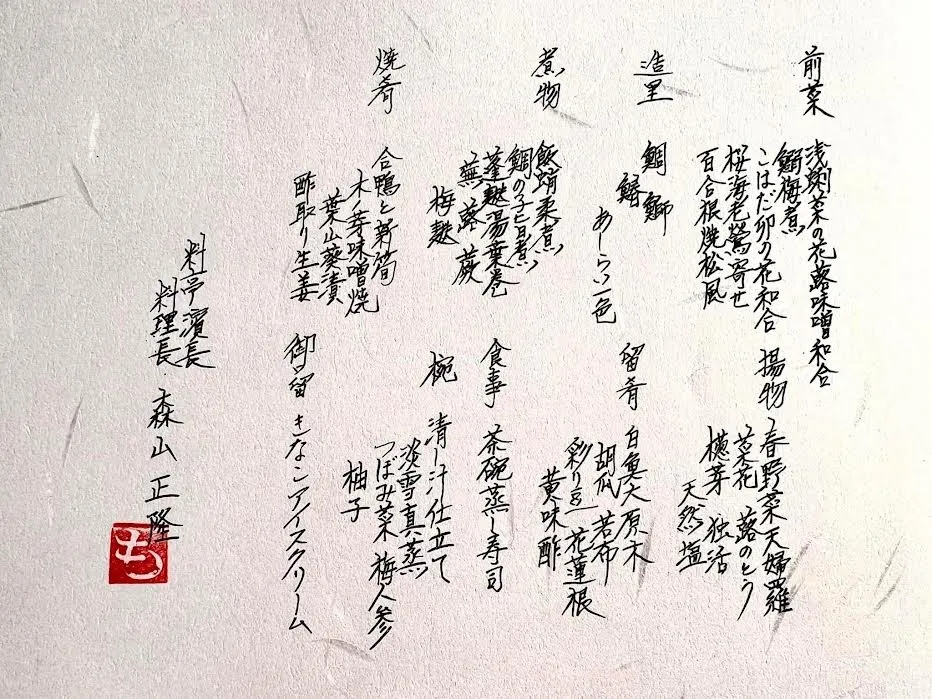 前菜
浅蜊菜の花蕗味噌和合
鰯梅煮
こはだ卯の花和合
桜海老鶯寄せ
百合根焼松風
造里
鯛 鰤
あしらい一色
煮物
飯蛸柔煮
鯛の子旨煮
蓬麩湯葉巻
蕪 蕗 蕨
梅麩
焼肴
合鴨と新筍
木ノ芽味噌焼
葉山葵漬
酢取り生姜
揚物
春野菜天婦羅
菜花 蕗のとう
独活
天然塩
留肴
白魚大原木
胡瓜 若布
彩り豆 花蓮根
黄味酢
食事
茶碗蒸し寿司
椀
清し汁仕立て
淡雪真蒸
つぼみ菜 梅人参
柚子
御留
きなこアイスクリーム
料亭濱長
料理長 森山正隆